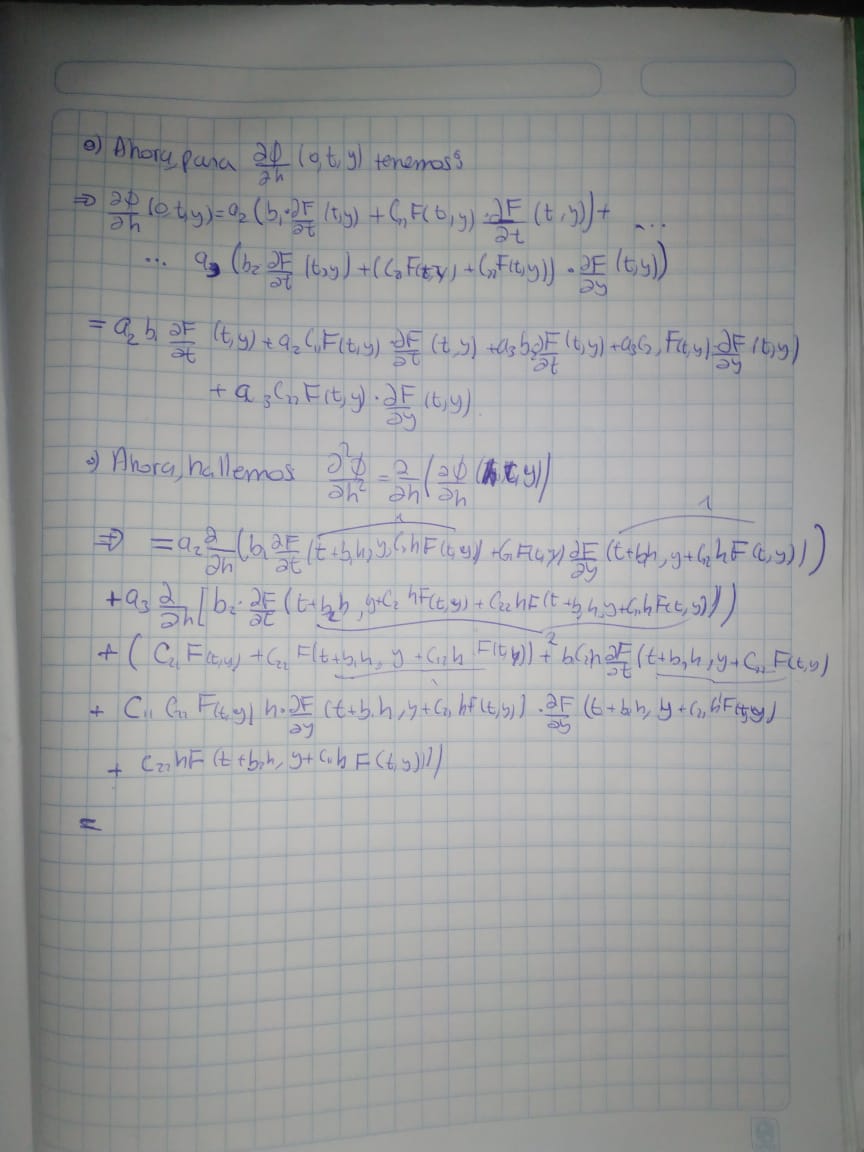 o) Ahora, para ∂Φ/∂h (0,t,y) tenemos:
⇒ ∂Φ/∂h (0,t,y) = a₂ (b₁·∂F/∂t (t,y) + C₁₁F(t,y)·∂F/∂t (t,y)) + ...
... a₃ (b₂ ∂F/∂t (t,y) + (C₂₁F(t,y) + C₂₂F(t,y))·∂F/∂y (t,y))
= a₂ b₁ ∂F/∂t (t,y) + a₂ C₁₁F(t,y) ∂F/∂t (t,y) + a₃ b₂ ∂F/∂t (t,y) + a₃C₂₁ F(t,y)·∂F/∂y (t,y)
+ a₃ C₂₂ F(t,y)·∂F/∂y (t,y)
o) Ahora, hallemos ∂²Φ/∂h² = ∂/∂h (∂Φ/∂h ( t,y))
1 1
⇒ = a₂ ∂/∂h (b₁ ∂F/∂t (t+b₁h, y, C₁₁hF(t,y)) + C₁F(t,y) ∂F/∂y (t+b₁h, y+C₁₂hF(t,y)))
+ a₃ ∂/∂h [b₂·∂F/∂t (t+b₂h, y+C₂₁hF(t,y) + C₂₂hF(t+b₁h, y+C₁₁hF(t,y)))
2
+ (C₂₁F(t,y) + C₂₂F(t+b₁h, y+C₁₂h F(t,y)) + bC₂₂h ∂F/∂t (t+b₁h, y+C₁₁F(t,y)
+ C₁₁ C₂₂ F(t,y) h·∂F/∂y (t+b₁h, y+C₁₁hF(t,y))·∂F/∂y (t+b₁h, y+C₂₁hF(t,y)
+ C₂₂hF(t+b₂h, y+C₁₁hF(t,y))))
=